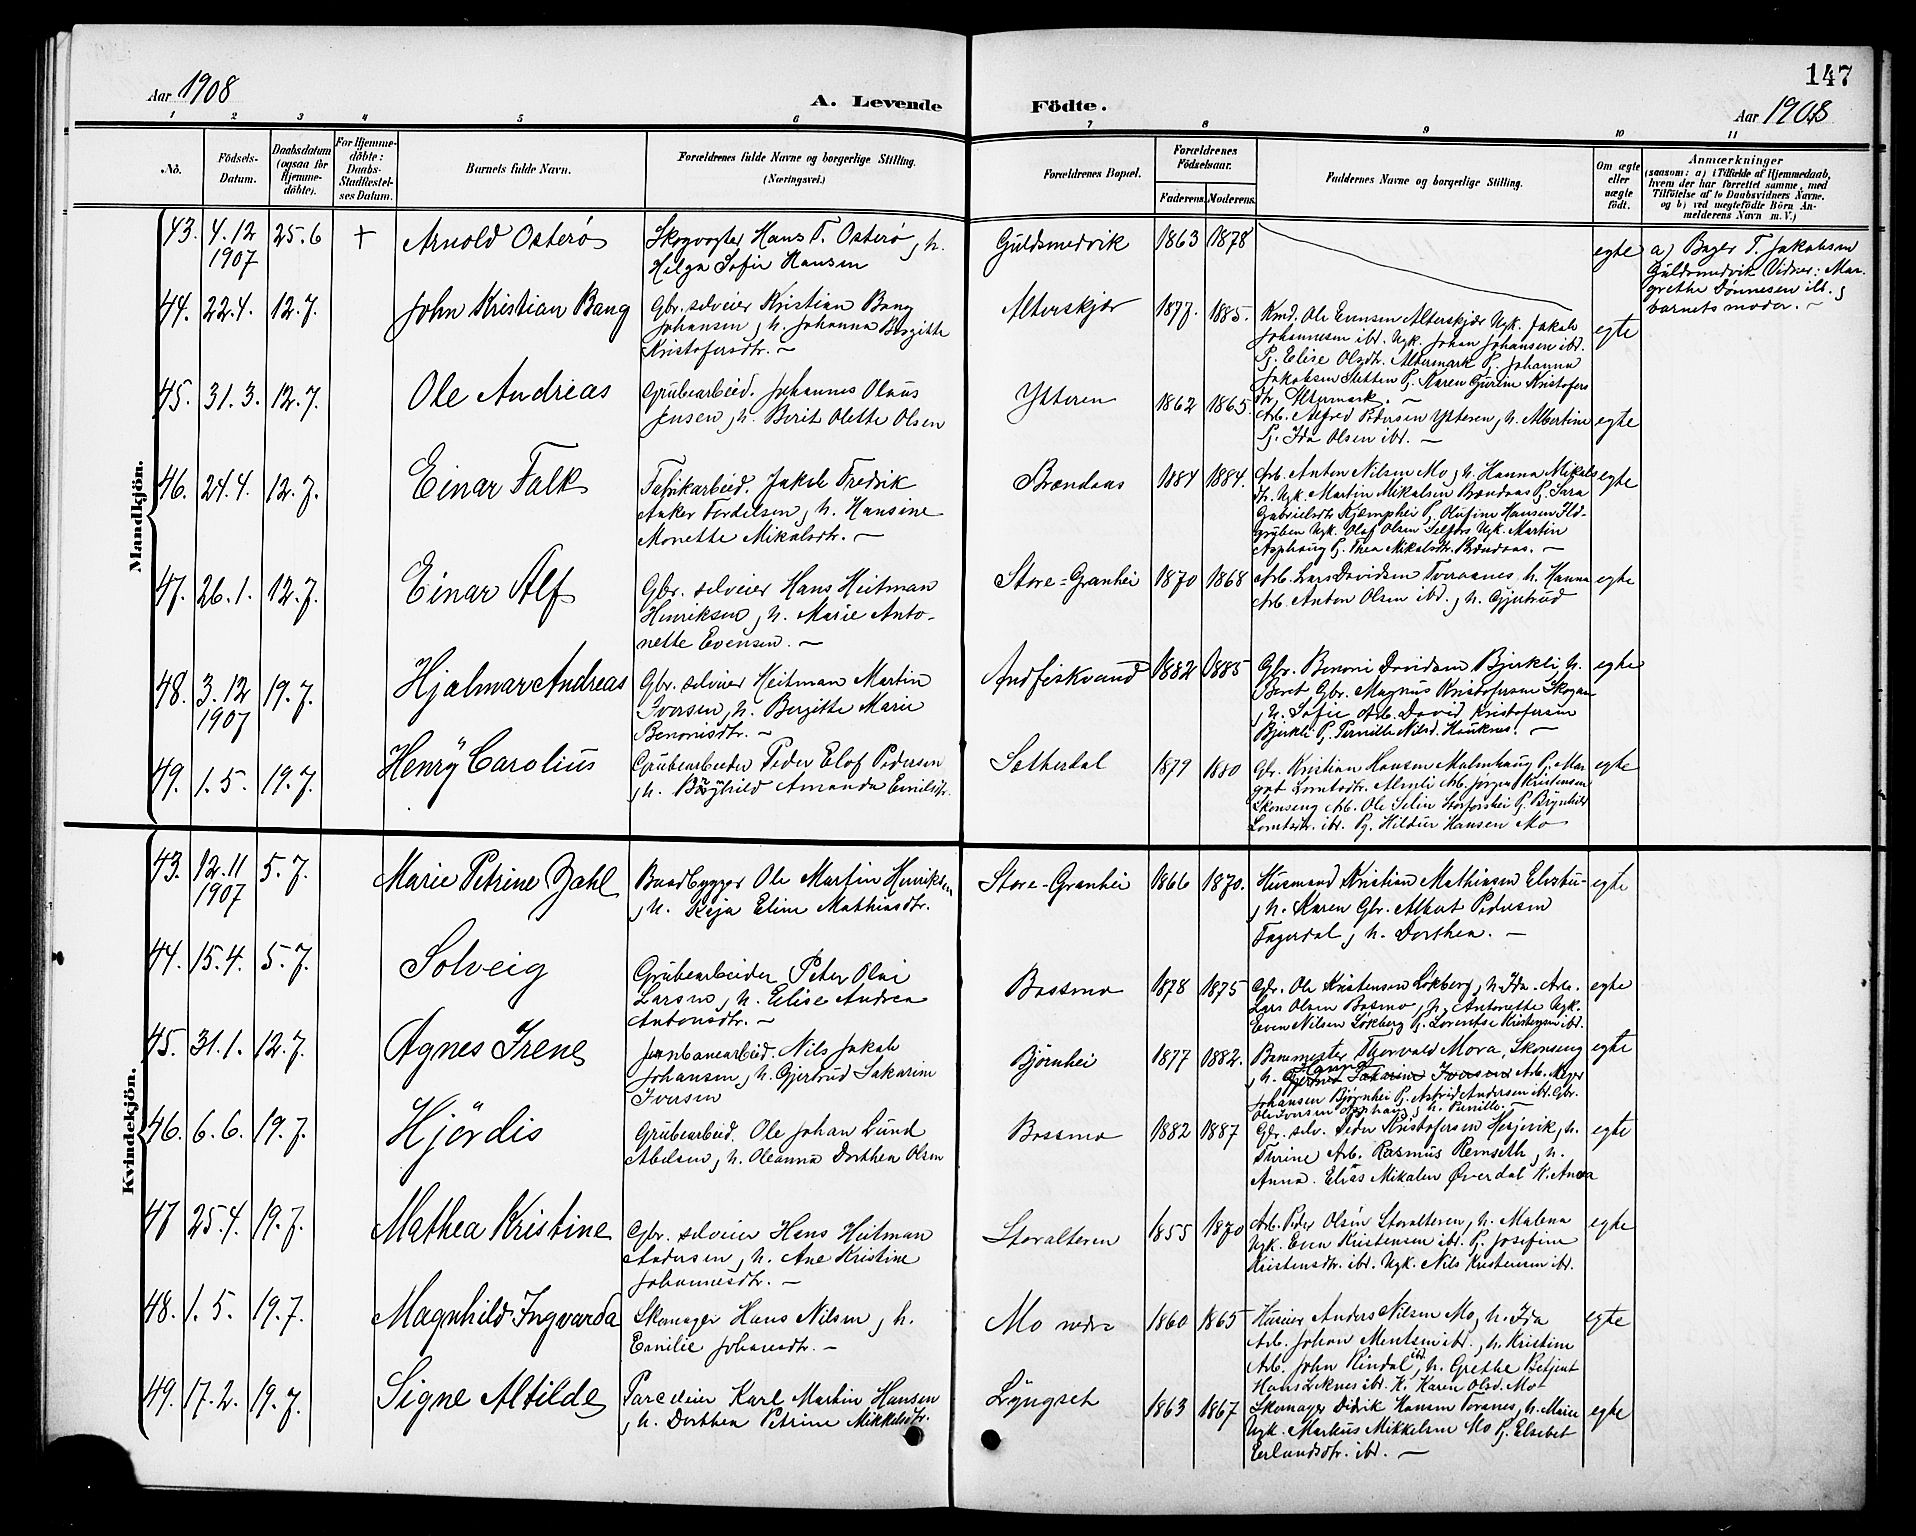 147
Aar 1908
A. Levende
Födte.
Aar 1908
1 2 3 4 5 6 7 8 9 10 11
No.
Födsels-Datum.
Daabsdatum (ogsaa for Hjemme-döbte).
For Hjemme-döbte: Daabs-Stadfestel-ses Datum.
Barnets fulde Navn.
Forældrenes fulde Navne og borgerlige Stilling.
(Næringsvei.)
Forældrenes Bopæl.
Forældrenes Födselsaar.
Faderens. Moderens.
Faddernes Navne og borgerlige Stilling.
Om ægte eller uægte födt.
Anmærkninger
(saasom: a) i Tilfælde af Hjemmedaab,
hvem der har forrettet samme, med
Tilföielse af to Daabsvidners Navne.
og b) ved uægtefödte Börn An-
melderens Navn m. V.)
Mandkjön.
43. 4.12 1907 25.6 + Arnold Osterø
Skogvogter Hans T. Osterø, h.
Helga Sofie Hansen
Guldsmedvik 1863 1878 egte
a) Bager T. Jakobsen
Guldsmedvik Vidner: Mar-
grethe Tønnesen ibd. og
barnets moder. —
44. 22.4. 12.7. John Kristian Bang
Gbr. selveier Kristian Bang
Johansen, h. Johanna Bergitte
Kristofersdtr. —
Alterskjær 1877. 1885.
Kmd. Ole Evensen Alterskjær Ugk. Jakob
Johannesen ibd. Ugk. Johan Johansen ibd.
Pj. Elise Olsdtr. Altermark Pj. Johanna
Jakobsen Sletten Pj. Karen Gurine Kristofers
dtr. Altermark. —
egte
45. 31.3. 12.7. Ole Andreas
Grubearbeid. Johannes Olaus
Jensen, h. Berit Olette Olsen
Ytteren 1862 1865.
Arb. Alfred Pedersen Ytteren, h. Albertine
Pj. Ida Olsen ibd. —
egte
46. 24.4. 12.7. Einar Falk
Fabrikarbeid. Jakob Fredrik
Anker Fordelsen, h. Hansine
Monette Mikalsdtr. —
Brændaas 1884 1884.
Arb. Anton Nilsen Mo, h. Hanna Mikals
dtr. Ugk. Martin Mikalsen Brændaas Pj. Sara
Gabrielsdtr. Kjæmphei Pj. Olufine Hansen Ild-
gruben Ugk. Olaf Olsen Selfors Ugk. Martin
Asphaug Pj. Thea Mikalsdtr. Brændaas. —
egte
47. 26.1. 12.7. Einar Alf
Gbr. selveier Hans Heitman
Henriksen, h. Marie Anto-
nette Evensen. —
Store-Granhei 1870 1868
Arb. Lars Davidsen Tveraanes, h. Hanna
Arb. Anton Olsen ibd., h. Gjertrud
egte
48. 3.12 1907 19.7. Hjalmar Andreas
Gbr. selveier Heitman Martin
Iversen, h. Bergitte Marie
Benonisdtr. —
Andfiskvand 1882 1885
Gbr. Benoni Davidsen Bjerkli, h.
Beret Gbr. Magnus Kristofersen Skogan
, h. Sofie Arb. David Kristofersen
Bjerkli Pj. Pernille Nilsd. Hauknes. —
egte
49. 1.5. 19.7. Henry Carolius
Grubearbeider Peder Elof Pedersen
, h. Amanda Emilsdtr.
Sætherdal 1879 1880
Gbr. Kristian Hansen Malmhaug Pj. Mar
got Lorntsdtr. Almli Arb. Jørgen Kristensen
Skonseng Arb. Ole Selin Storforshei Pj. Brynhild
Lorntsdtr. ibd. Pj. Hildur Hansen Mo
egte
Kvindekjön.
43. 12.11 1907 5.7. Marie Petrine Zahl
Baadbygger Ole Martin Henriksen
, h. Keja Eline Mathiasdtr.
Store-Granhei 1866 1870.
Husmand Kristian Mathiasen
, h. Karen Gbr. Albert Pedersen
Fagerdal, h. Dorthea. —
egte
44. 15.4. 5.7. Solveig
Grubearbeider Peter Olai
Larsen, h. Elise Andrea
Antonsdtr. —
Bossmo 1878 1875
Gbr. Ole Kristensen Løkberg, h. Ida. Arb.
Lars Olsen Bosmo, h. Antonette Ugk.
Even Nilsen Løkberg Pj. Lorentse Kristensen ibd.
egte
45. 31.1. 12.7. Agnes Irene
Jernbanearbeid. Nils Jakob
Johansen, h. Gjertrud Sakarine
Iversen
Bjørnhei 1877 1882.
Banemester Thorvald Mora, Skonseng
, h. Hanna Arb. Meyer
Johansen Bjørnhei Pj. Astrid Andersen ibd. Gbr.
Ole Iversen Asphaug, h. Pernille. —
egte
46. 6.6. 19.7. Hjördis
Grubearbeid. Ole Johan Lund
Abelsen, h. Oleanna Dorthea Olsen
Bossmo 1882 1887
Gbr. selv. Peder Kristofersen Hesjevik, h.
Thrine Arb. Rasmus Remseth, h.
Anna. Elias Mikalsen Øverdal K. Anna
egte
47 25.4. 19.7. Mathea Kristine
Gbr. selveier Hans Heitman
Andersen, h. Ane Kristine
Johannesdtr. —
Storalteren 1855 1870
Arb. Peder Olsen Storalteren, h. Malena
Ugk. Even Kristensen ibd. Pj. Josefine
Kristensdtr. ibd. Ugk. Nils Kristensen ibd.
egte
48. 1.5. 19.7. Magnhild Ingvarda
Skomager Hans Nilsen, h.
Emilie Johansdtr. —
Mo nedre 1860 1865
Huseier Anders Nilsen Mo, h. Ida
Arb. Johan Mentsen ibd., h. Kristine
Arb. John Rindal ibd., h. Grethe Betjent
Hans Leknes ibd. K. Karen Olsd. Mo
egte
49. 17.2. 19.7. Signe Altilde
Parceleier Karl Martin Hansen
, h. Dorthea Petrine Mikkelsdtr.
Lyngset 1863 1867
Skomager Didrik Hansen Toranes, h. Marie
Ugk. Markus Mikkelsen Mo Pj. Elsebet
Erlandsdtr. ibd. —
egte